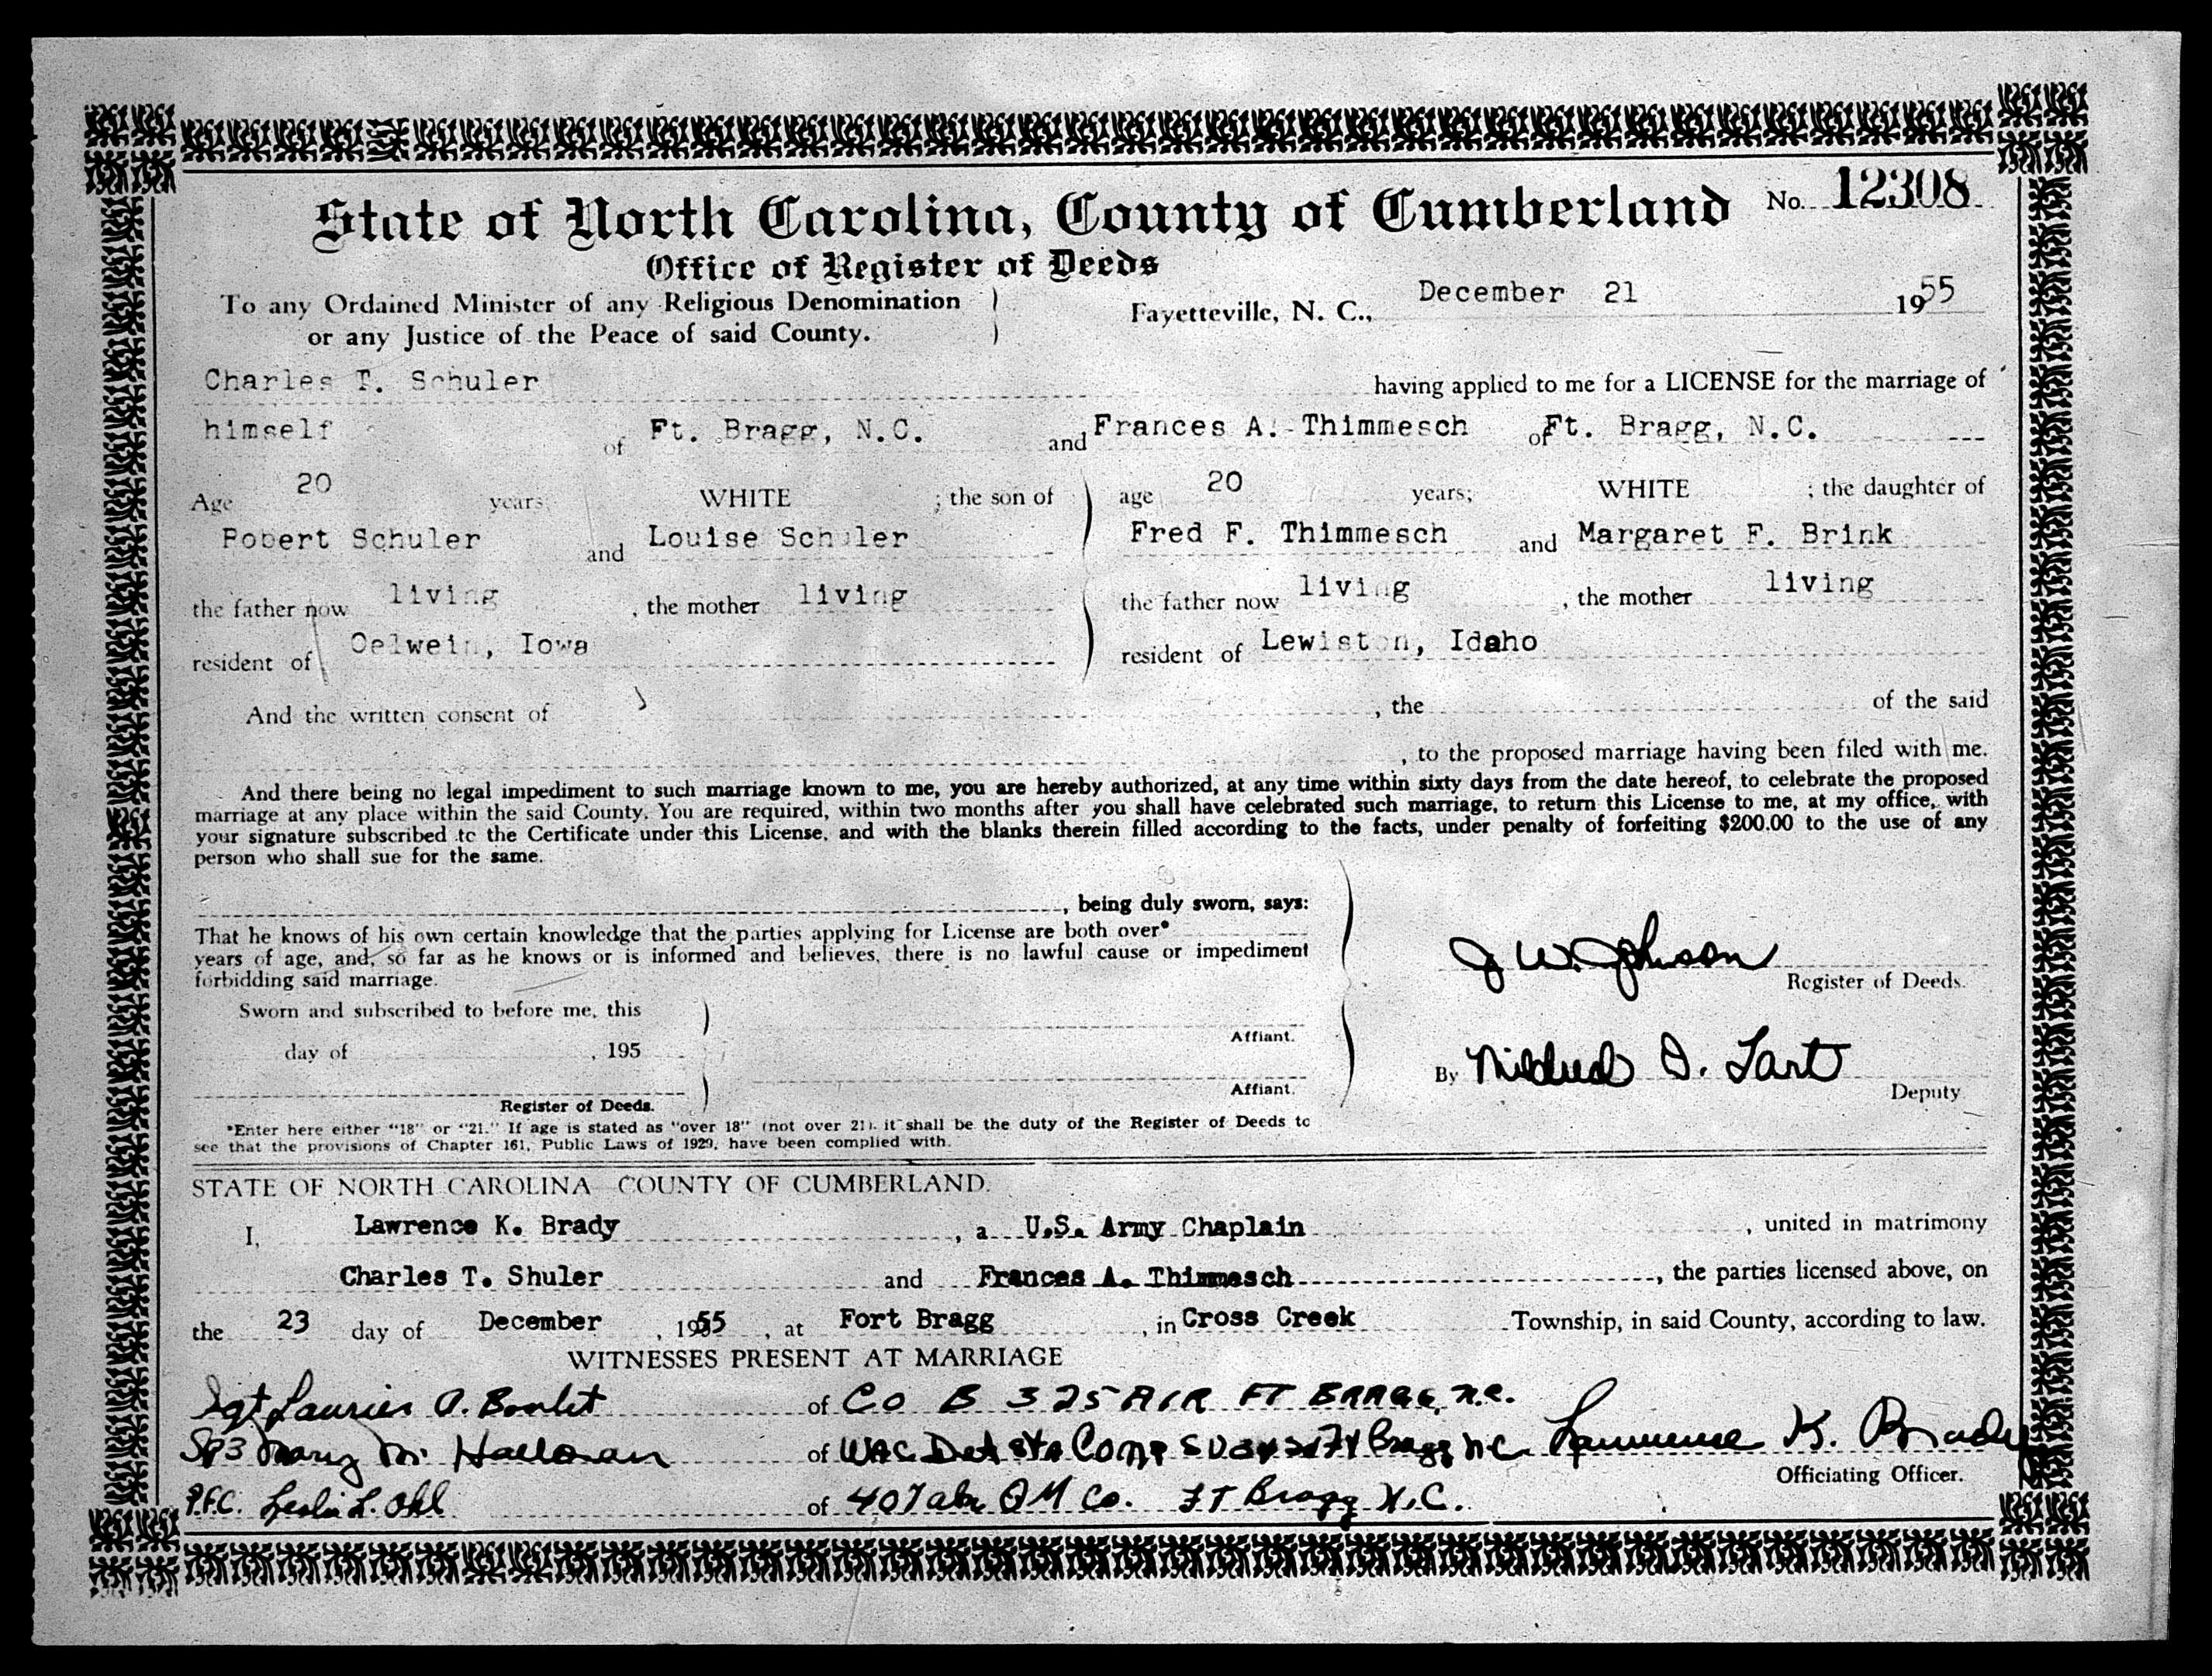 State of North Carolina, County of Cumberland No. 12308
Office of Register of Deeds
To any Ordained Minister of any Religious Denomination
or any Justice of the Peace of said County.
Fayetteville, N. C., December 21 1955
Charles T. Schuler having applied to me for a LICENSE for the marriage of
himself of Ft. Bragg, N.C. and Frances A. Thimmesch of Ft. Bragg, N.C. ---
Age 20 years; WHITE ; the son of
Robert Schuler and Louise Schuler
the father now living , the mother living
resident of Oelwein, Iowa
age 20 years; WHITE ; the daughter of
Fred F. Thimmesch and Margaret F. Brink
the father now living , the mother living
resident of Lewiston, Idaho
And the written consent of , the of the said
, to the proposed marriage having been filed with me.
And there being no legal impediment to such marriage known to me, you are hereby authorized, at any time within sixty days from the date hereof, to celebrate the proposed
marriage at any place within the said County. You are required, within two months after you shall have celebrated such marriage, to return this License to me, at my office, with
your signature subscribed to the Certificate under this License, and with the blanks therein filled according to the facts, under penalty of forfeiting $200.00 to the use of any
person who shall sue for the same.
, being duly sworn, says:
That he knows of his own certain knowledge that the parties applying for License are both over*
years of age, and, so far as he knows or is informed and believes, there is no lawful cause or impediment
forbidding said marriage.
Sworn and subscribed to before me, this
day of , 195
Register of Deeds.
Affiant.
Affiant.
J W. Johnson
Register of Deeds.
By Mildred D. Tart
Deputy
*Enter here either "18" or "21." If age is stated as "over 18" (not over 21), it shall be the duty of the Register of Deeds to
see that the provisions of Chapter 161, Public Laws of 1929, have been complied with.
STATE OF NORTH CAROLINA COUNTY OF CUMBERLAND.
I, Lawrence K. Brady , a U.S. Army Chaplain , united in matrimony
Charles T. Shuler and Frances A. Thimmesch , the parties licensed above, on
the 23 day of December , 1955 , at Fort Bragg , in Cross Creek Township, in said County, according to law.
WITNESSES PRESENT AT MARRIAGE
Sgt Laurier of Co B 325 AIR FT BRAGG, N.C.
SP3 Mary M. Halloran of WAC Det Sta Comp Ft Bragg NC
P.F.C. Leslie L. Ohl of 407 abn QM Co. FT Bragg N.C.
Lawrence K. Brady
Officiating Officer.